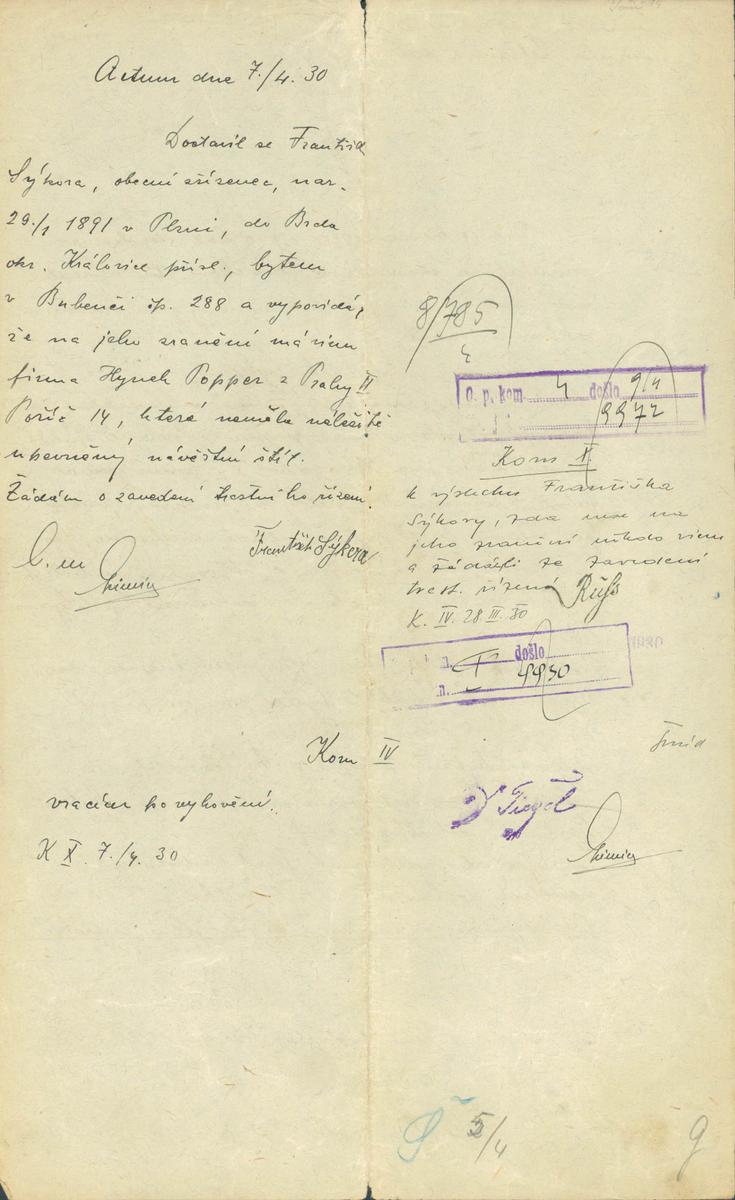 Actum dne 7./4. 30
Dostavil se František
Sýkora, obecní zřízenec, nar.
29./1 1891 v Plzni, do Brda
okr. Kralovice přísl., bytem
v Bubenči čp. 288 a vypovídá,
že na jeho zranění má vinu
firma Hynek Popper z Prahy II
Poříč 14, která neměla náležitě
upevněný návěstní štít.
Žádám o zavedení trestního řízení.
František Sýkora
Kom IV
vracím po vyhovění.
K X. 7./4. 30
8/785
4
O. p. kom 4 došlo 9/4
9972
Kom X.
k výslechu Františka
Sýkory, zda nese na
jeho zranění někdo vinu
a žádá-li za zavedení
trest. řízení
K. IV. 28 III. 30
došlo
n. 9930
1930
5/4
9